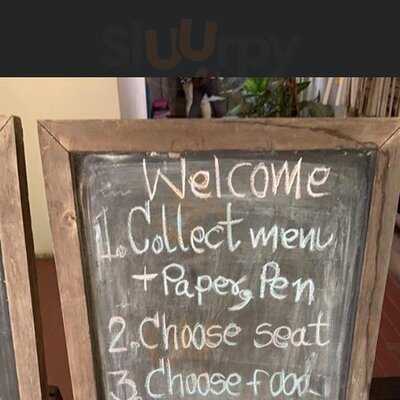 sluurpy
Welcome
1. Collect menu
+ Paper, Pen
2. Choose seat
3. Choose food